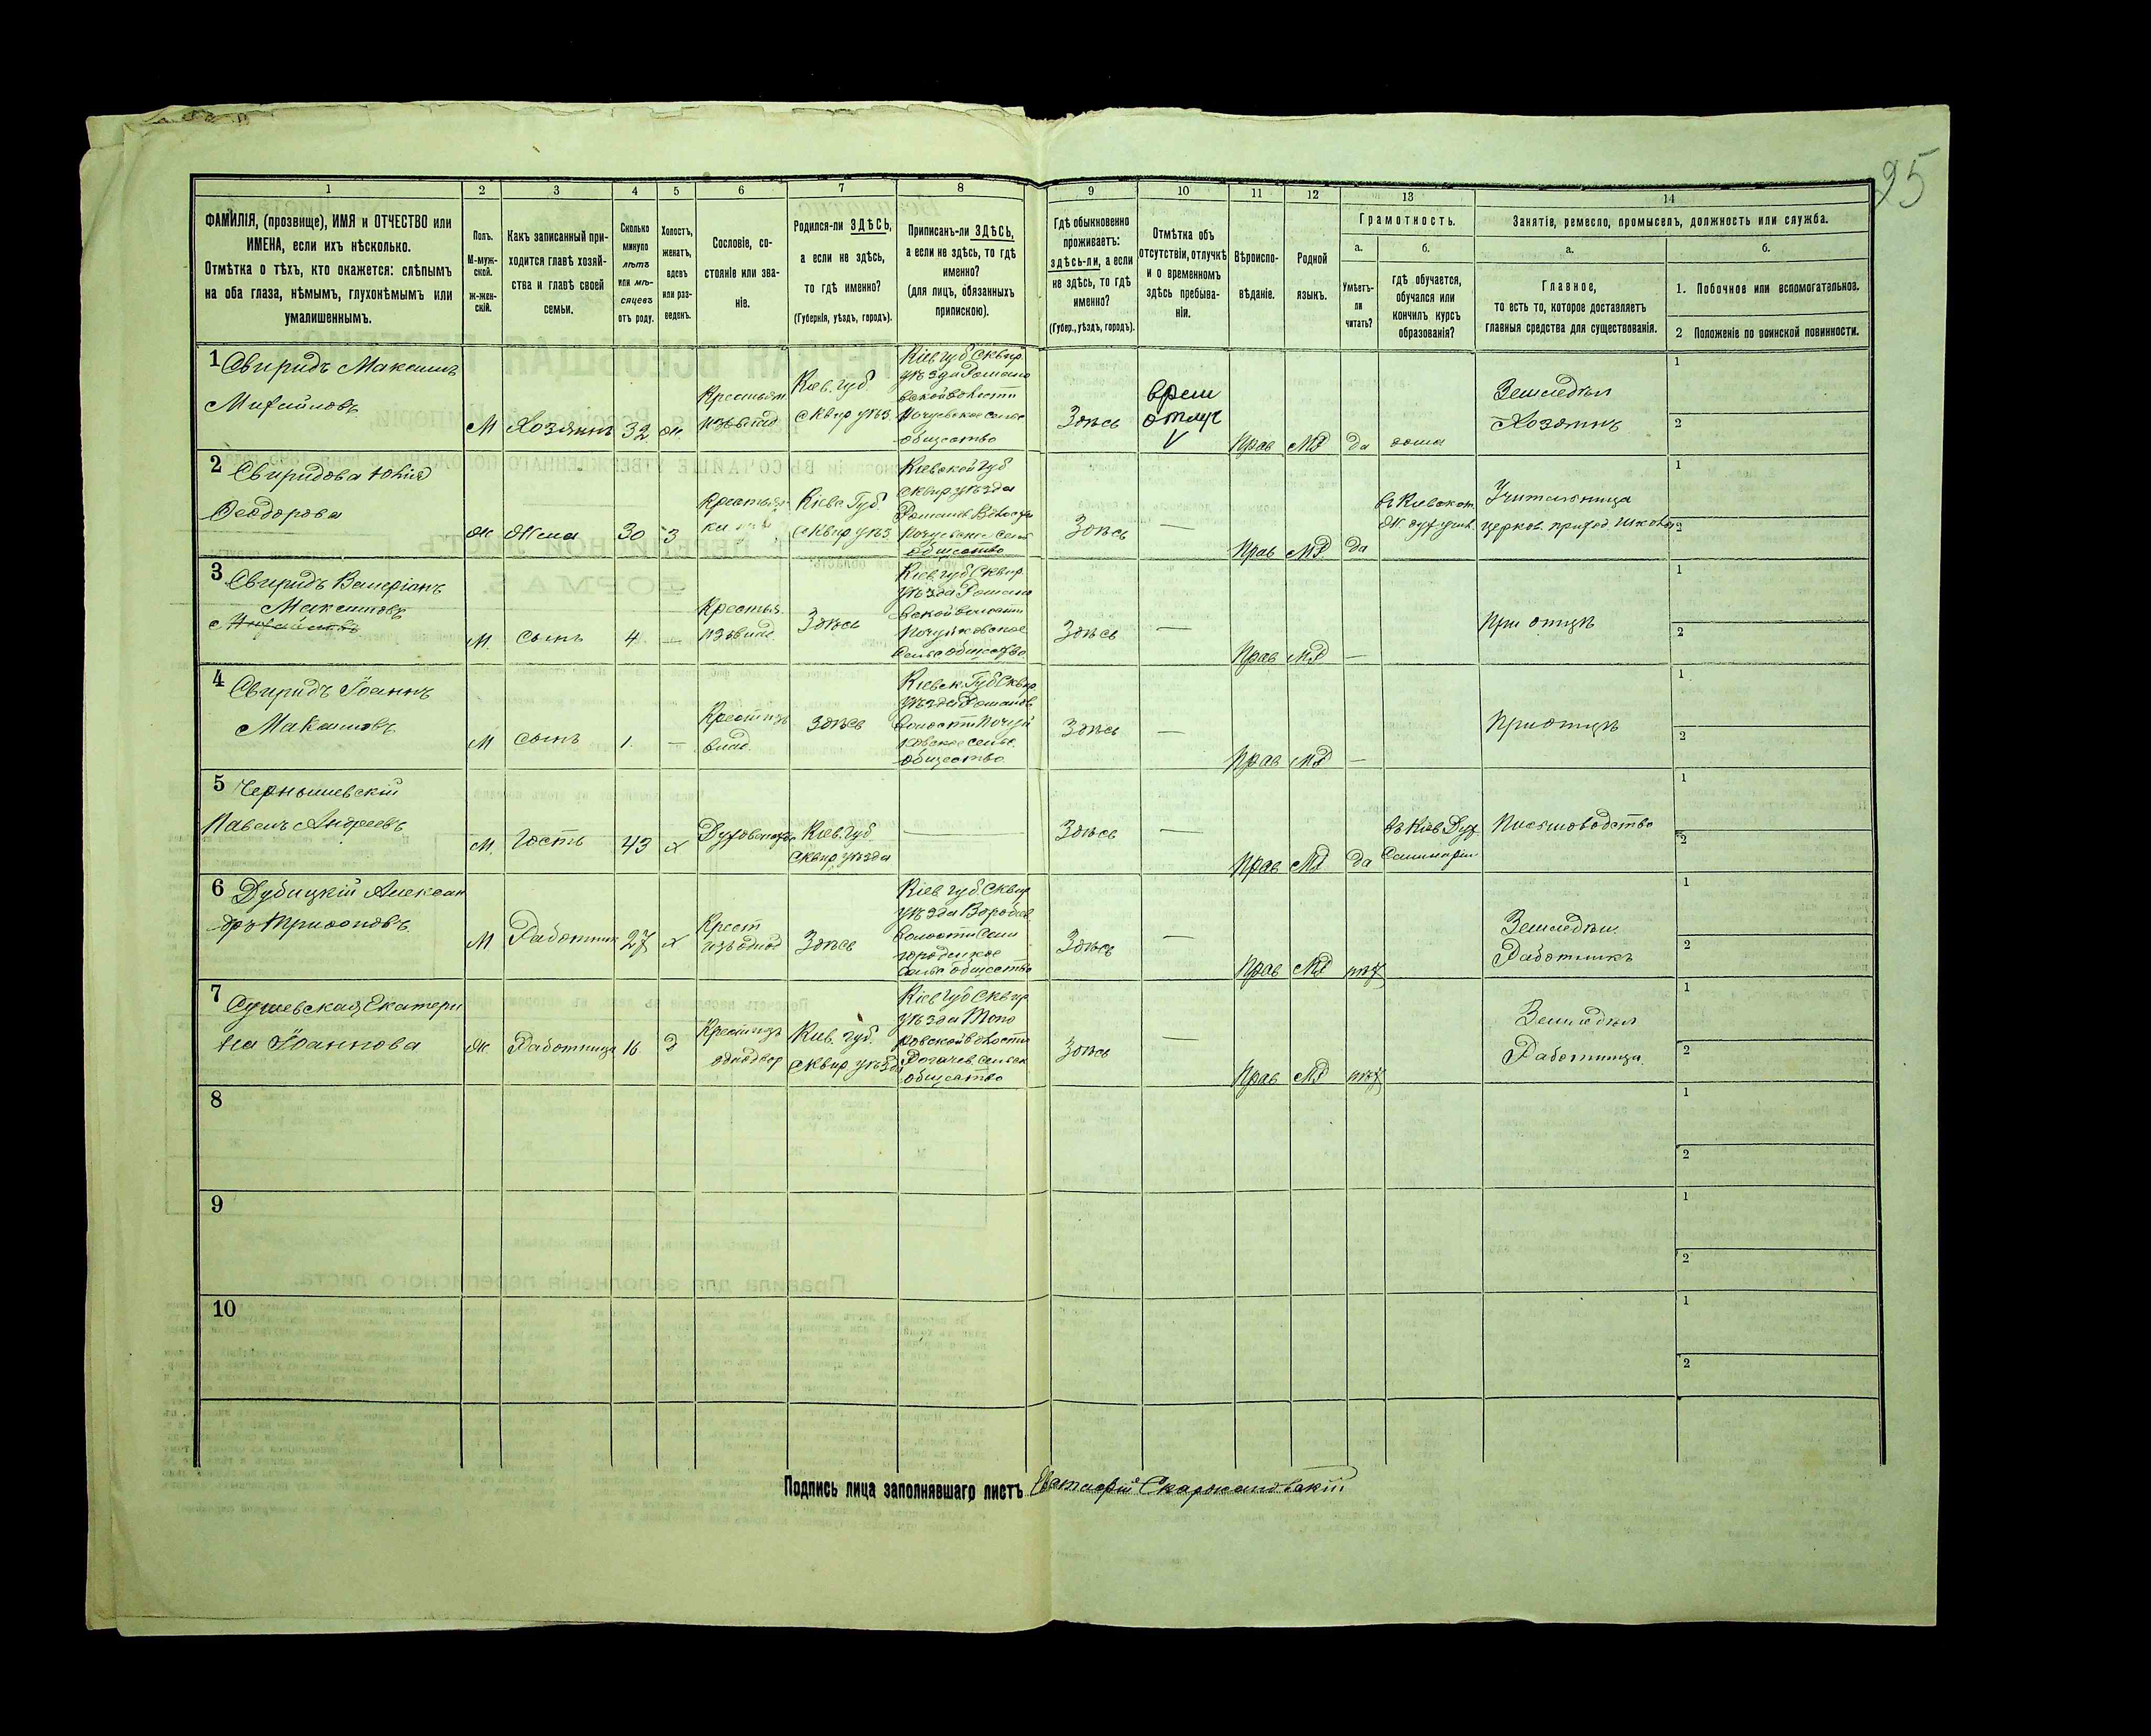 25
1 2 3 4 5 6 7 8 9 10 11 12 13 14
ФАМИЛІЯ, (прозвище), ИМЯ и ОТЧЕСТВО или
ИМЕНА, если ихъ нѣсколько.
Отмѣтка о тѣхъ, кто окажется: слѣпымъ
на оба глаза, нѣмымъ, глухонѣмымъ или
умалишеннымъ.
Полъ.
М-муж-
ской.
ж-жен-
скій.
Какъ записанный при-
ходится главѣ хозяй-
ства и главѣ своей
семьи.
Сколько
минуло
лѣтъ
или мѣ-
сяцевъ
отъ роду.
Холостъ,
женатъ,
вдовъ
или раз-
веденъ.
Сословіе, со-
стояніе или зва-
ніе.
Родился-ли ЗДѢСЬ,
а если не здѣсь,
то гдѣ именно?
(Губернія, уѣздъ, городъ).
Приписанъ-ли ЗДѢСЬ,
а если не здѣсь, то гдѣ
именно?
(для лицъ, обязанныхъ
припискою).
Гдѣ обыкновенно
проживаетъ:
здѣсь-ли, а если
не здѣсь, то гдѣ
именно?
(Губер., уѣздъ, городъ).
Отмѣтка объ
отсутствіи, отлучкѣ
и о временномъ
здѣсь пребыва-
ніи.
Вѣроиспо-
вѣданіе.
Родной
языкъ.
Грамотность.
а.
Умѣетъ-
ли
читать?
б.
гдѣ обучается,
обучался или
кончилъ курсъ
образованія?
Занятіе, ремесло, промыселъ, должность или служба.
а.
Главное,
то есть то, которое доставляетъ
главныя средства для существованія.
б.
1. Побочное или вспомогательное.
2 Положеніе по воинской повинности.
1 Свиридъ Максимъ
Михайловъ
М Хозяинъ 32 ж.
Крестьян
изъ влад
Кіев. губ
сквир уѣз.
Кіев губ Сквир
уѣзда Романо
вской волости
общество
Здѣсь
врем
отлуч
V
Прав МР да дома
Земледѣл
Хозяинъ
1
2
2 Свиридова Юлія
Феодорова
ж Жена 30 З
Крестья
ки
Кіевс Губ.
Сквир уѣз
Кіевской Губ
Сквир уѣзда
Романов Волости
общество
Здѣсь —
Прав МР да
въ Кіевском
Ж. дух учил.
Учительница
церков. приход школы
1
2
3 Свиридъ Валеріанъ
Максимовъ
Михайловъ
М. сынъ 4. —
Крестья
изъ влад.
Здѣсь
Кіев губ Сквир
уѣзда Романо
вской волости
Почуйковское
Сельс общество
Здѣсь —
Прав МР —
При отцѣ
1
2
4 Свиридъ Іоаннъ
Максимовъ
М сынъ 1. —
Крест изъ
влад.
здѣсь
Кіевск. Губ Сквир
уѣзда Романов
волости Почуй
ковское сельс.
общество
Здѣсь —
Прав МР —
При отцѣ
1
2
5 Чернышевскій
Павелъ Андреевъ
М. Гость 43 х
Духовенства
Кіев. губ
сквир уѣзда
—
Здѣсь —
Прав МР да
въ Кіев Дух
Семинаріи
Письмоводство
1
2
6 Дубицкій Алексан
дръ Трифоновъ
М Работник 27 х
Крест
изъ однод
Здѣсь
Кіев губ. Сквир
волости
городецкое
Сельс общество
Здѣсь —
Прав МР нѣт
Земледѣл.
Работникъ
1
2
7 Сушевская Екатери
на Іоаннова
ж. Работница 16 Д
Крест изъ
однодвор
Кіев. губ.
Сквир уѣзда
Кіев губ Сквир
уѣзда Топо
ровской волости
Рогачев сельск
общество
Здѣсь —
Прав МР нѣт
Земледѣл
Работница
1
2
8
1
2
9
1
2
10
1
2
Подпись лица заполнявшаго листъ